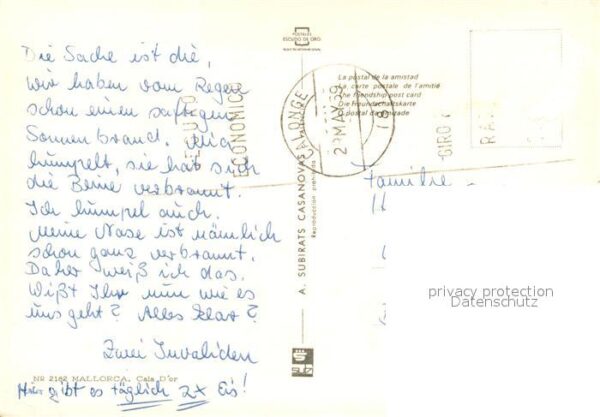 Die Sache ist die,
wir haben vom Regen
schon einen saftigen
Sonnenbrand.
humpelt, sie hat sich
die Beine verbrannt.
Ich humpel auch.
Meine Nase ist nämlich
schon ganz verbrannt.
Daher weiß ich das.
Wißt Ihr nun wie es
uns geht? Alles klar?
Zwei Invaliden
Nº 2162 MALLORCA. Cala D'or
gibt es täglich 2x Eis!
POSTALES
ESCUDO DE ORO
La postal de la amistad
La carte postale de l'amitié
The friendship post card
Die Freundschaftskarte
postal da amizade
ECONOMICO
ALONGE
29 MAY 69
GIRO
A. SUBIRATS CASANOVAS
Reproduccion prohibida
Familie
privacy protection
Datenschutz